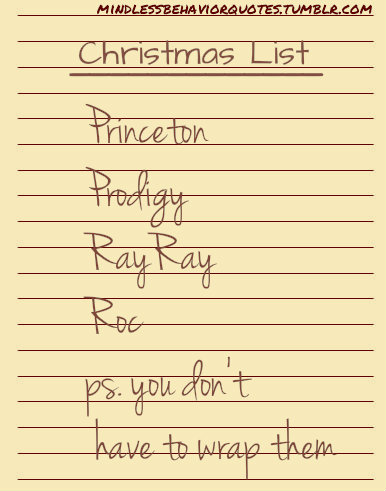 MINDLESSBEHAVIORQUOTES.TUMBLR.COM
Christmas List
Princeton
Prodigy
Ray Ray
Roc
ps. you don't
have to wrap them